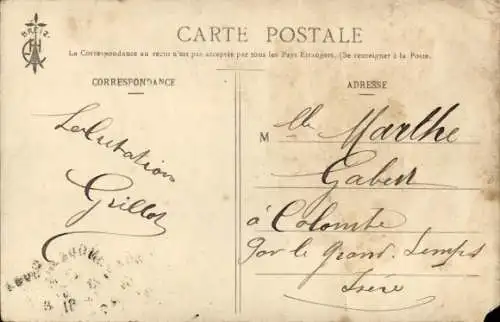 BREIZ
CARTE POSTALE
La Correspondance au recto n'est pas acceptée par tous les Pays Etrangers. (Se renseigner à la Poste.
CORRESPONDANCE
ADRESSE
Salutation
Grillot
Mlle Marthe
Gabert
à Colombe
par le Grand-Lemps
Isère